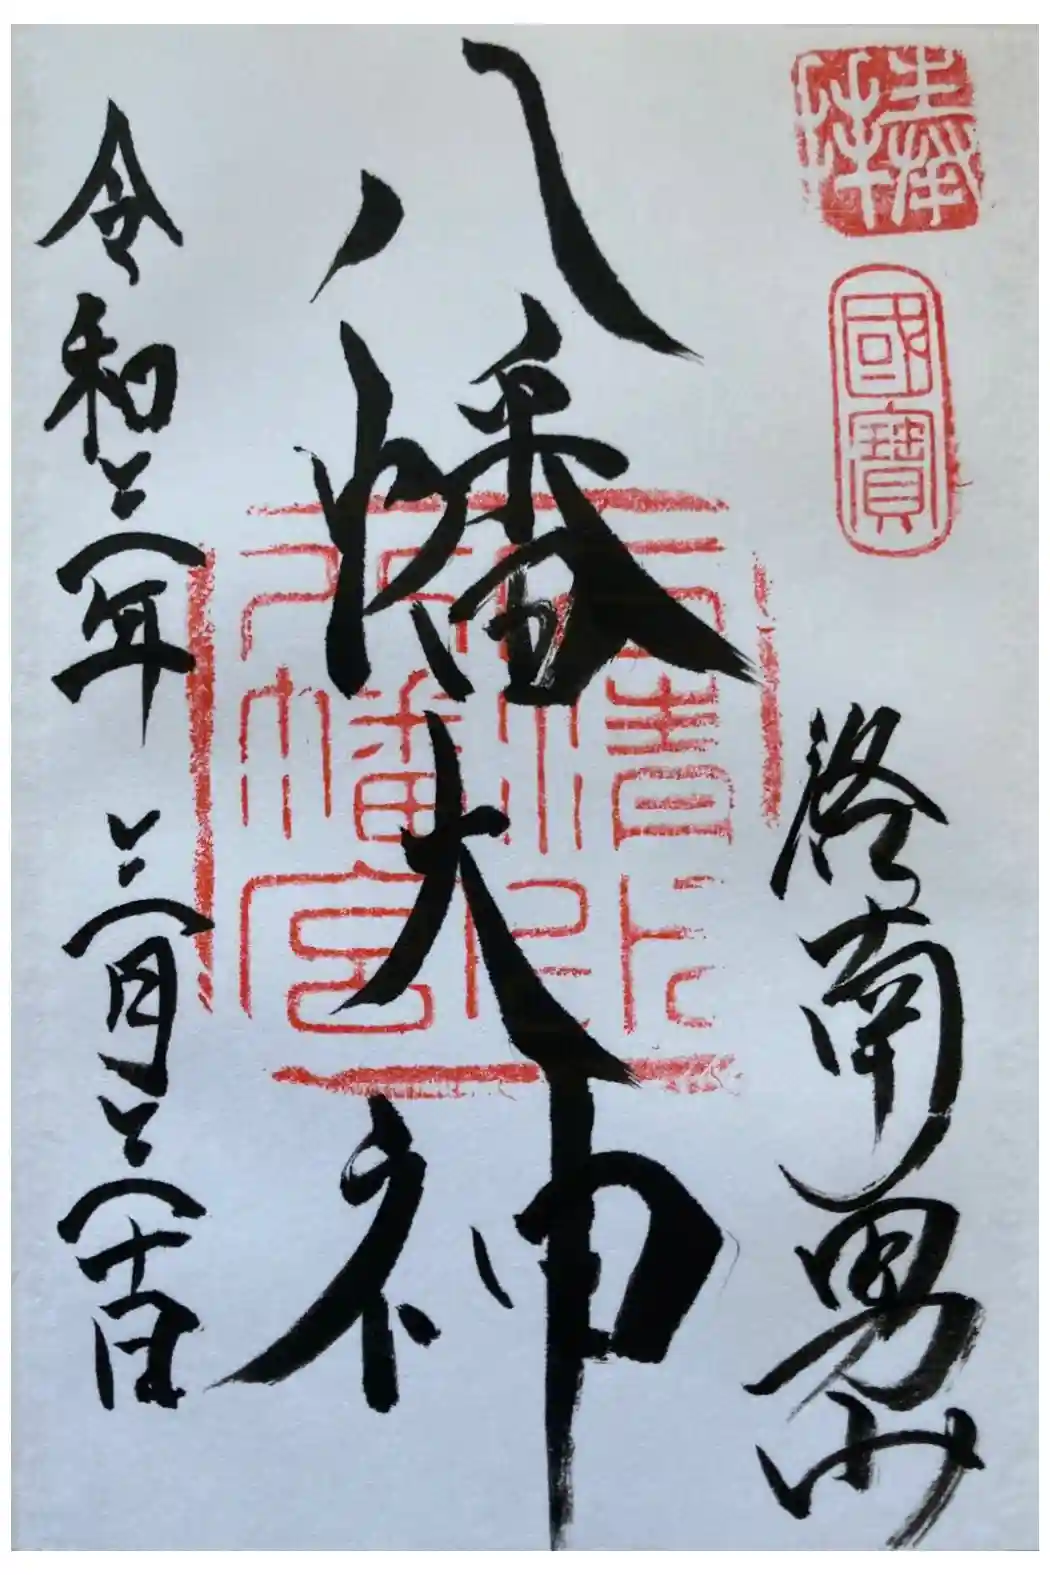 奉拝
國寶
洛南男山
八幡大神
石清水
八幡宮
令和三年 三月三十日